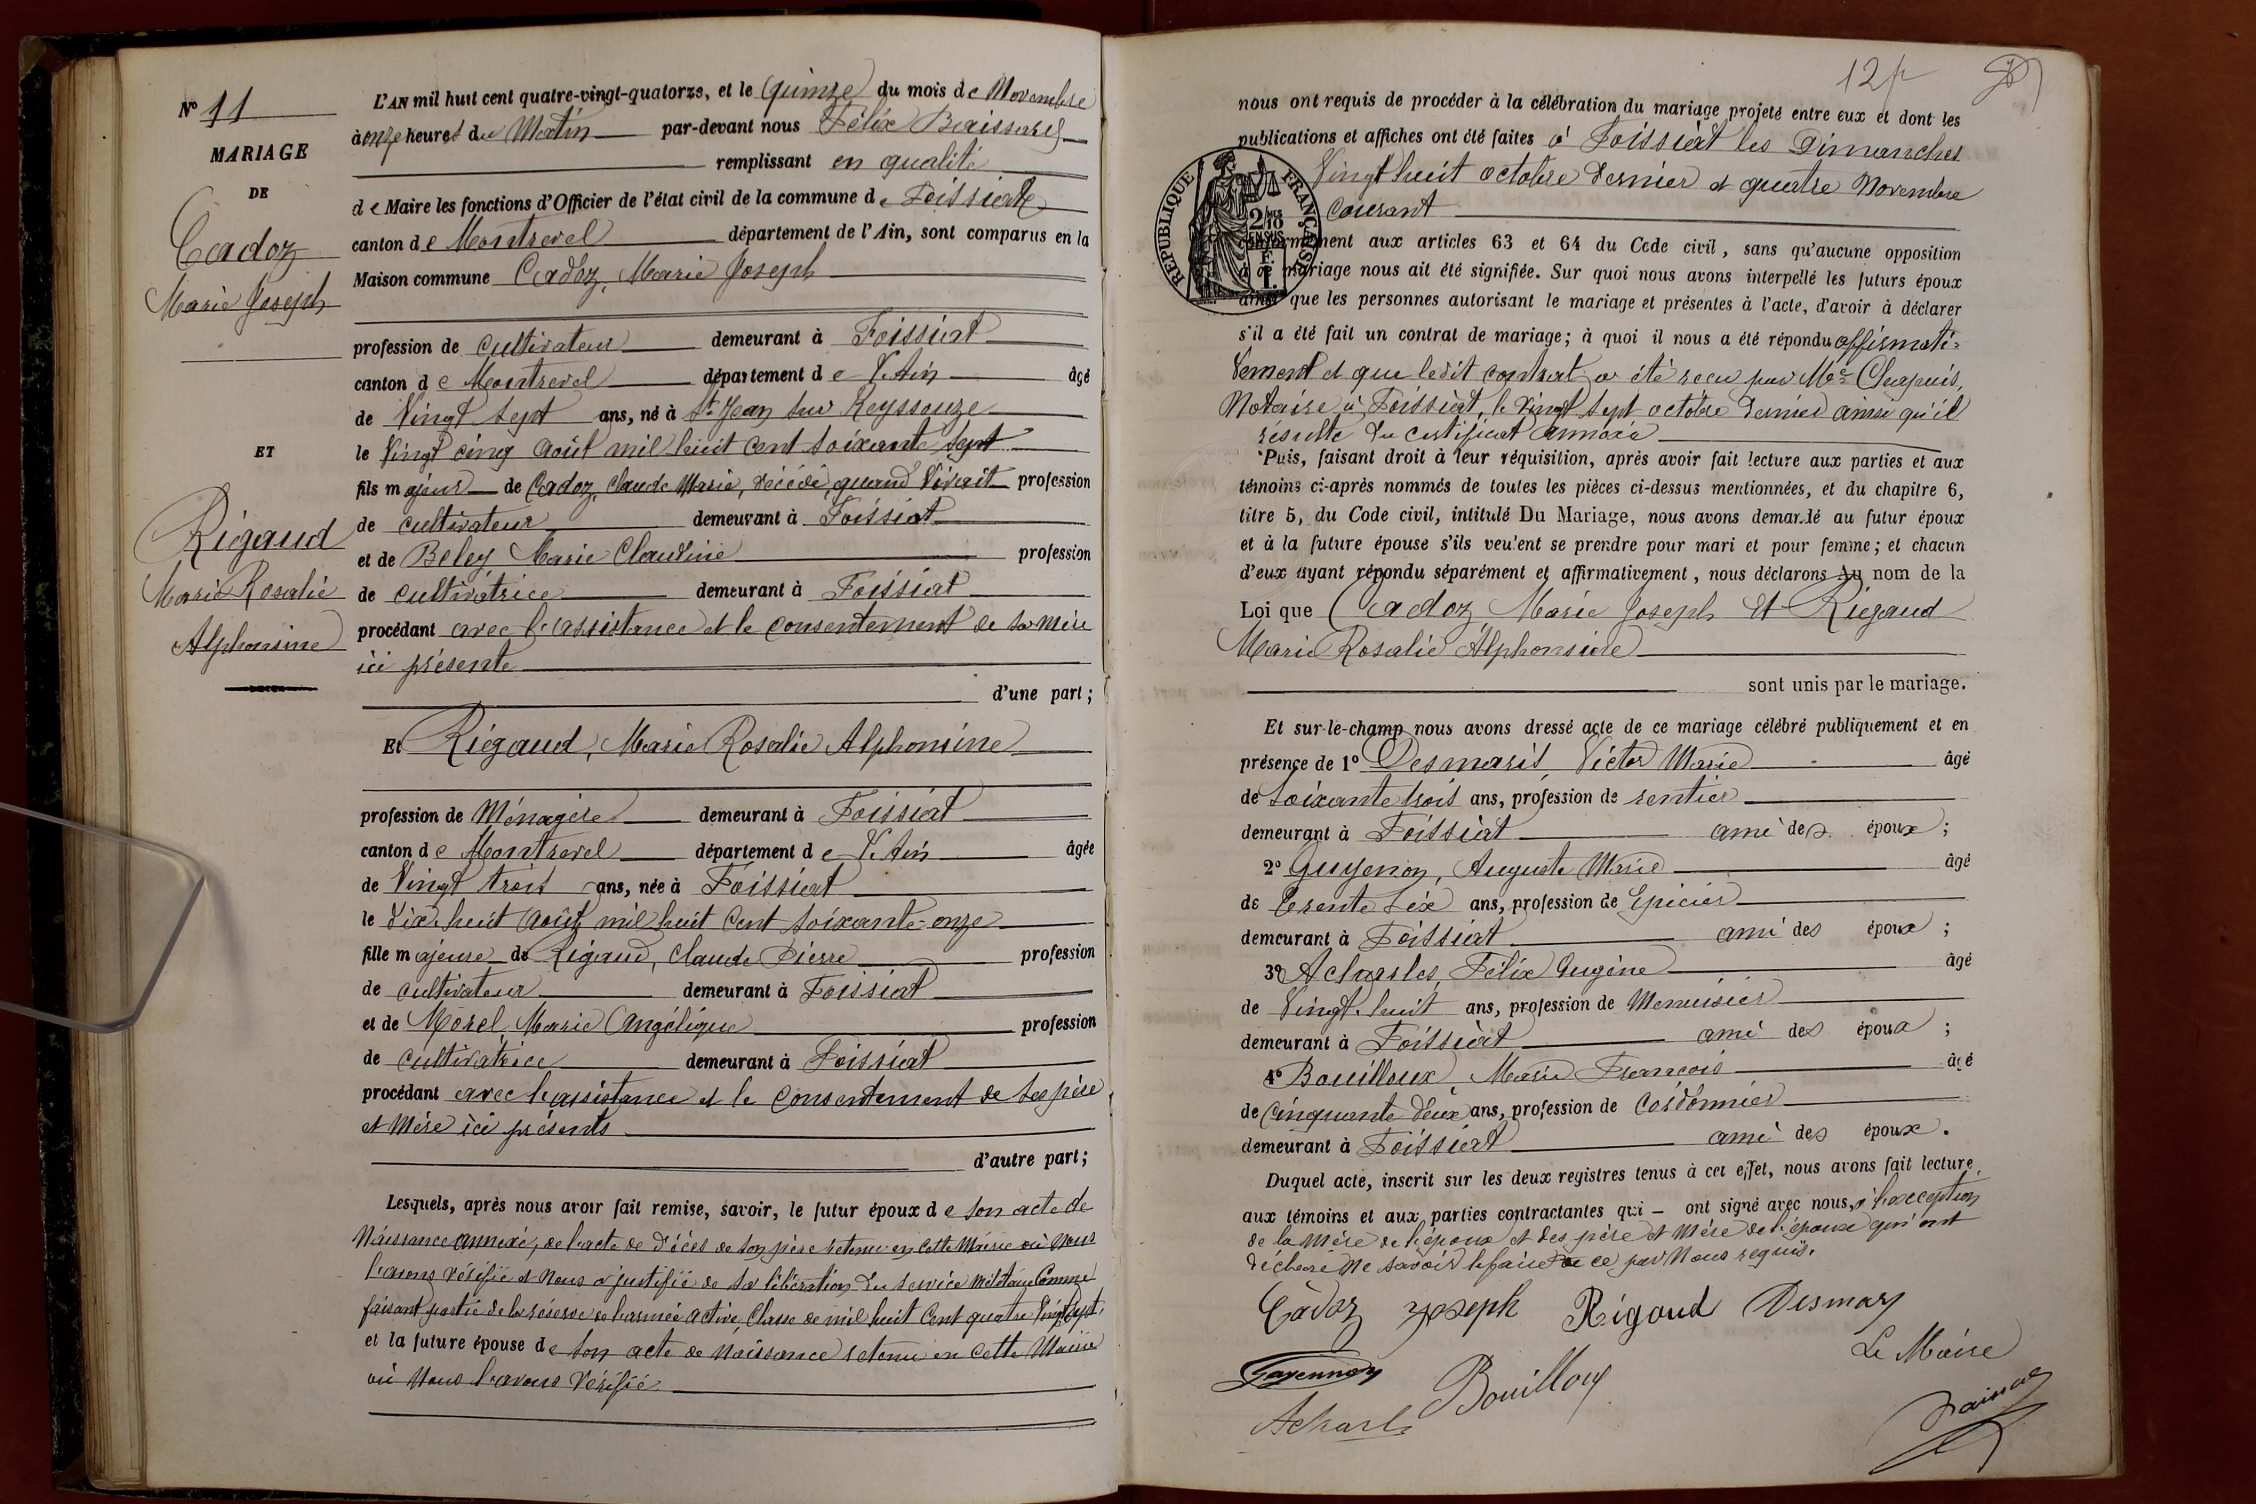 N° 11
MARIAGE
DE
Cadoz
Marie Joseph
ET
Rigaud
Marie Rosalie
Alphonsine
L'AN mil huit cent quatre-vingt-quatorze, et le Quinze du mois de Novembre
à onze heures du Matin par-devant nous Félix
remplissant en qualité
de Maire les fonctions d'Officier de l'état civil de la commune de Foissiat
canton de Montrevel département de l'Ain, sont comparus en la
Maison commune Cadoz, Marie Joseph
profession de cultivateur demeurant à Foissiat
canton de Montrevel département de l'Ain âgé
de Vingt sept ans, né à St Jean sur Reyssouze
le Vingt cinq Août mil huit cent soixante sept
fils majeur de Cadoz, Claude Marie, décédé, quand Vivait profession
de cultivateur demeurant à Foissiat
et de Beley Marie Claudine profession
de cultivatrice demeurant à Foissiat
procédant avec l'assistance et le consentement de sa mère
ici présente
d'une part ;
Et Rigaud, Marie Rosalie Alphonsine
profession de Ménagère demeurant à Foissiat
canton de Montrevel département de l'Ain âgée
de Vingt trois ans, née à Foissiat
le Dix-huit Août mil huit cent soixante-onze
fille majeure de Rigaud, Claude Pierre profession
de cultivateur demeurant à Foissiat
et de Morel Marie Angélique profession
de cultivatrice demeurant à Foissiat
procédant avec l'assistance et le consentement de ses père
et mère ici présents
d'autre part ;
Lesquels, après nous avoir fait remise, savoir, le futur époux de son acte de
Naissance annexé, de l'acte de décès de son père retenu en cette Mairie où nous
l'avons vérifié et nous a justifié de sa libération du service militaire Comme
faisant partie de la réserve de l'armée active, Classe de mil huit Cent quatre Vingt sept,
et la future épouse de son acte de naissance retenu en cette Mairie
où Nous l'avons Vérifié
12
nous ont requis de procéder à la célébration du mariage projeté entre eux et dont les
publications et affiches ont été faites à Foissiat les Dimanches
Vingt huit octobre dernier et quatre Novembre
courant
RÉPUBLIQUE FRANÇAISE
conformément aux articles 63 et 64 du Code civil, sans qu'aucune opposition
à ce mariage nous ait été signifiée. Sur quoi nous avons interpellé les futurs époux
ainsi que les personnes autorisant le mariage et présentes à l'acte, d'avoir à déclarer
s'il a été fait un contrat de mariage ; à quoi il nous a été répondu affirmati-
vement et que ledit contrat a été reçu par Me Chapuis,
Notaire à Foissiat, le Vingt sept octobre dernier ainsi qu'il
résulte du certificat annexé
Puis, faisant droit à leur réquisition, après avoir fait lecture aux parties et aux
témoins ci-après nommés de toutes les pièces ci-dessus mentionnées, et du chapitre 6,
titre 5, du Code civil, intitulé Du Mariage, nous avons demandé au futur époux
et à la future épouse s'ils veulent se prendre pour mari et pour femme ; et chacun
d'eux ayant répondu séparément et affirmativement, nous déclarons Au nom de la
Loi que Cadoz Marie Joseph Et Rigaud
Marie Rosalie Alphonsine
sont unis par le mariage.
Et sur-le-champ nous avons dressé acte de ce mariage célébré publiquement et en
présence de 1° Desmaris, Victor Marie âgé
de Soixante trois ans, profession de rentier
demeurant à Foissiat ami des époux ;
2° Guyenon, Auguste Marie âgé
de trente six ans, profession de Epicier
demeurant à Foissiat ami des époux ;
3° Acharles, Félix Eugène âgé
de Vingt-huit ans, profession de Menuisier
demeurant à Foissiat ami des époux ;
4° Bouilloux, Marie François âgé
de Cinquante deux ans, profession de Cordonnier
demeurant à Foissiat ami des époux.
Duquel acte, inscrit sur les deux registres tenus à cet effet, nous avons fait lecture
aux témoins et aux parties contractantes qui ont signé avec nous, à l'exception
de la Mère de l'époux et des père et mère de l'épouse qui ont
déclaré ne savoir le faire de ce par Nous requis.
Cadoz Joseph Rigaud Desmaris
Guyennon Bouilloux Le Maire
Acharles